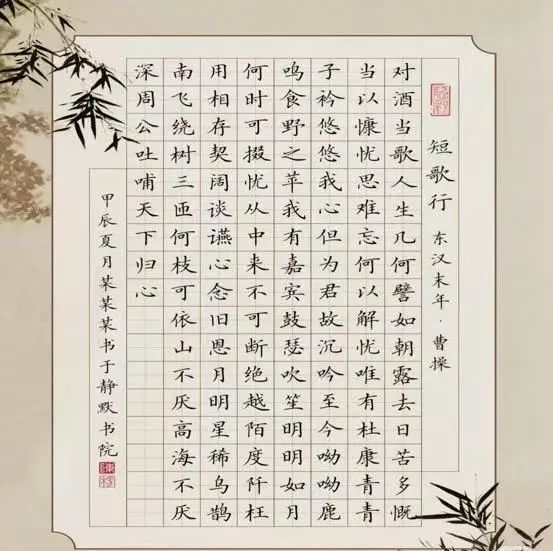 短歌行 东汉末年·曹操
对酒当歌人生几何譬如朝露去日苦多慨
当以慷忧思难忘何以解忧唯有杜康青青
子衿悠悠我心但为君故沉吟至今呦呦鹿
鸣食野之苹我有嘉宾鼓瑟吹笙明明如月
何时可掇忧从中来不可断绝越陌度阡枉
用相存契阔谈讌心念旧恩月明星稀乌鹊
南飞绕树三匝何枝可依山不厌高海不厌
深周公吐哺天下归心
甲辰夏月某某某书于静默书院